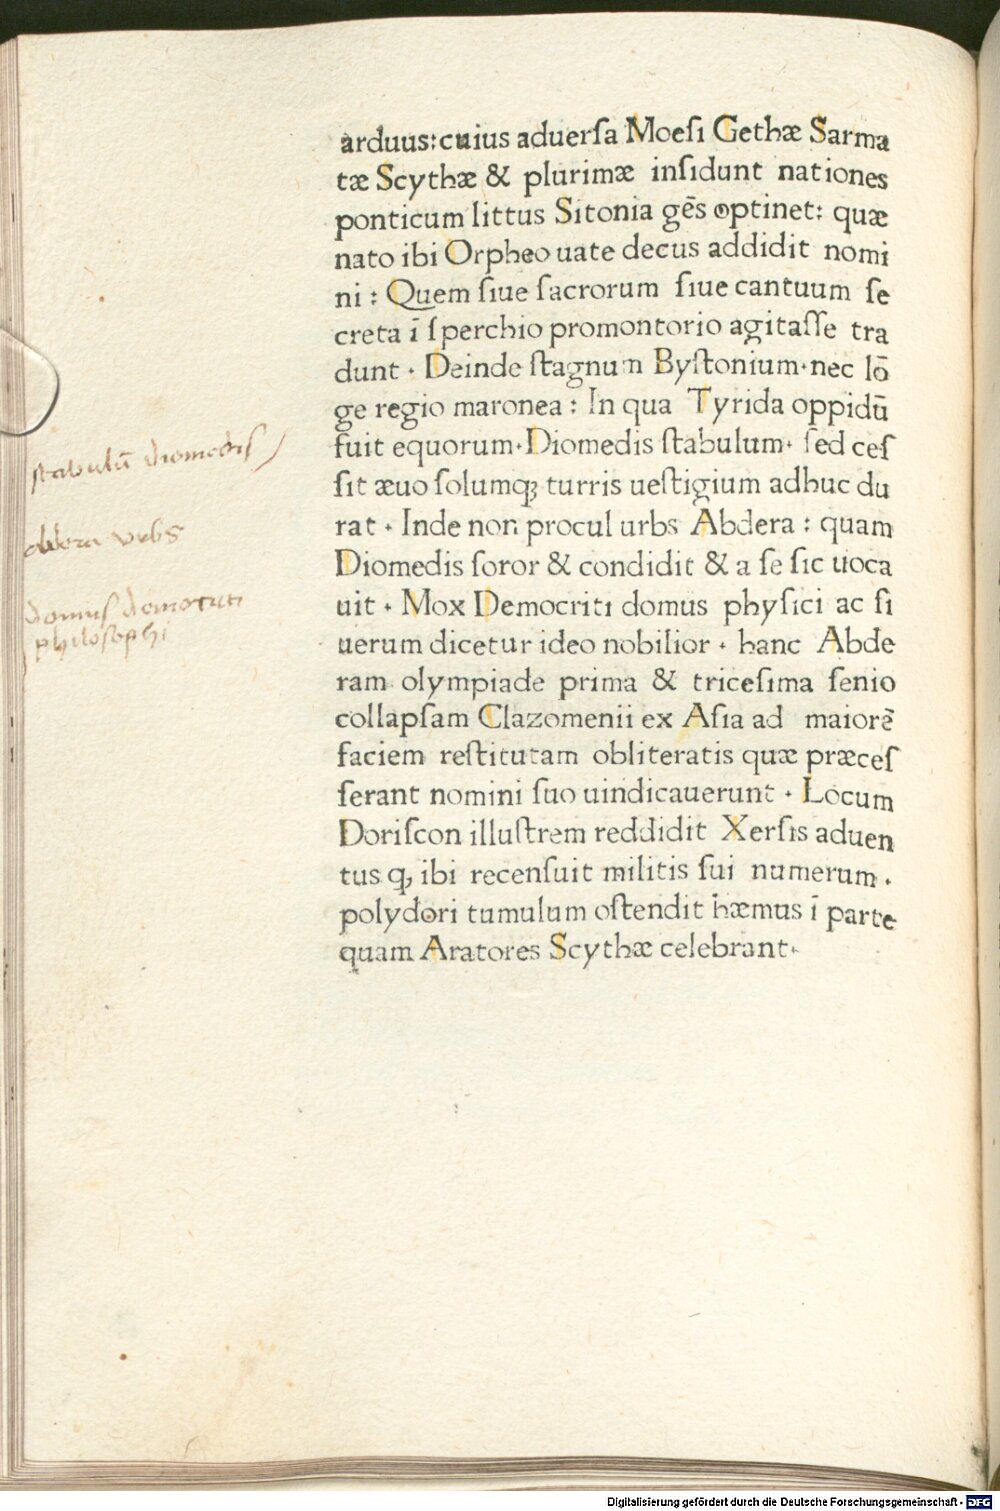 arduus:cuius aduerſa Moeſi Gethæ Sarma
tæ Scythæ & plurimæ inſidunt nationes
ponticum littus Sitonia gēs optinet: quæ
nato ibi Orpheo uate decus addidit nomi
ni : Quem ſiue ſacrorum ſiue cantuum ſe
creta ī ſperchio promontorio agitaſſe tra
dunt · Deinde ſtagnum Byſtonium·nec lō
ge regio maronea : In qua Tyrida oppidū
fuit equorum·Diomedis ſtabulum· ſed ceſ
ſit æuo ſolumqꝫ turris ueſtigium adhuc du
rat · Inde non procul urbs Abdera : quam
Diomedis ſoror & condidit & a ſe ſic uoca
uit · Mox Democriti domus phyſici ac ſi
uerum dicetur ideo nobilior · hanc Abde
ram olympiade prima & triceſima ſenio
collapſam Clazomenii ex Aſia ad maiorē
faciem reſtitutam obliteratis quæ præceſ
ſerant nomini ſuo uindicauerunt · Locum
Doriſcon illuſtrem reddidit Xerſis aduen
tus qꝫ ibi recenſuit militis ſui numerum ·
polydori tumulum oſtendit hæmus ī parte
quam Aratores Scythæ celebrant·
ſtabulū diomedis
abdera urbs
domus democriti
philosophi
Digitalisierung gefördert durch die Deutsche Forschungsgemeinschaft - DFG